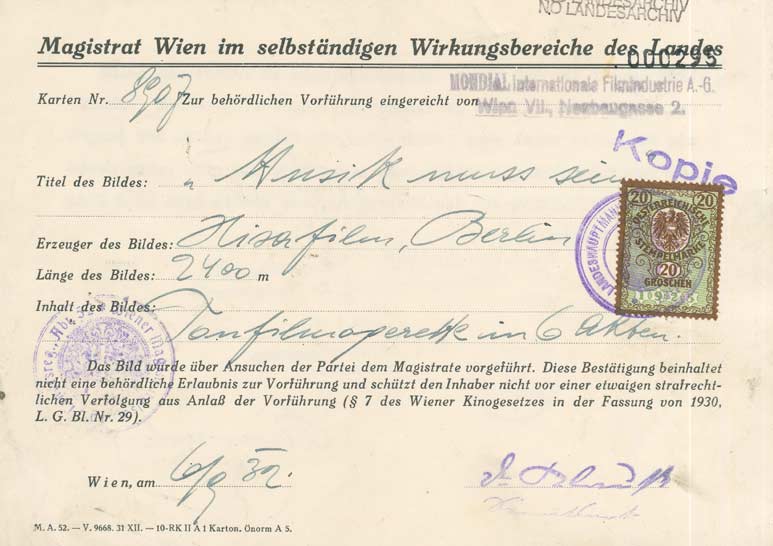 NÖ LANDESARCHIV
NÖ LANDESARCHIV
Magistrat Wien im selbständigen Wirkungsbereiche des Landes
000295
MONDIAL Internationale Filmindustrie A.-G.
Karten Nr. 8907 Zur behördlichen Vorführung eingereicht von
Wien VII., Neubaugasse 2.
Kopie
Titel des Bildes: „ Musik muss sein
20 20
ÖSTERREICHISCHE
STEMPELMARKE
20
GROSCHEN
LANDESHAUPTMAN
Erzeuger des Bildes: Hisafilm, Berlin
Länge des Bildes: 2400 m
Inhalt des Bildes:
Tonfilmoperette in 6 Akten.
Das Bild wurde über Ansuchen der Partei dem Magistrate vorgeführt. Diese Bestätigung beinhaltet
nicht eine behördliche Erlaubnis zur Vorführung und schützt den Inhaber nicht vor einer etwaigen strafrecht-
lichen Verfolgung aus Anlaß der Vorführung (§ 7 des Wiener Kinogesetzes in der Fassung von 1930,
L. G. Bl. Nr. 29).
Wien, am 6/9 32.
M. A. 52. — V. 9668. 31 XII. — 10-RK II A 1 Karton. Önorm A 5.